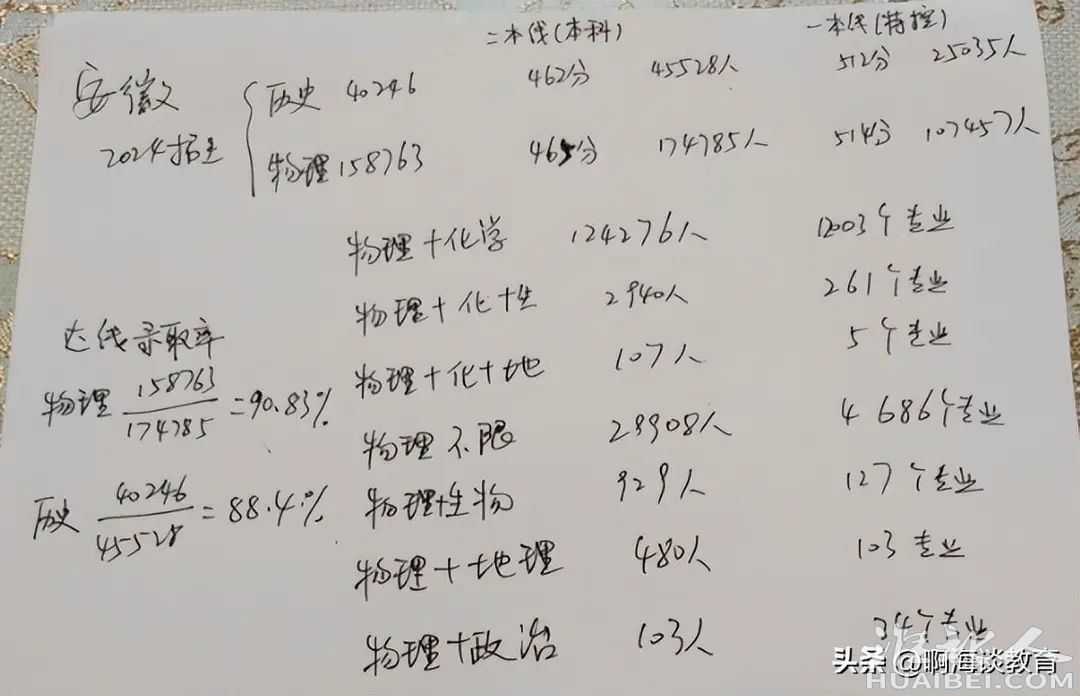 二本线(本科) 一本线(特控)
安徽 历史 40246 462分 45528人 512分 25035人
2024招生 物理 158763 465分 174785人 514分 107457人
物理+化学 124276人 12003个专业
物理+化+生 2940人 261个专业
达线录取率 物理+化+地 107人 5个专业
物理 158763/174785=90.83% 物理不限 29908人 4686个专业
历史 40246/45528=88.4% 物理+生物 929人 127个专业
物理+地理 480人 103专业
物理+政治 103人 34个专业
头条 @啊海谈教育
淮北人
HUAIBEI.COM